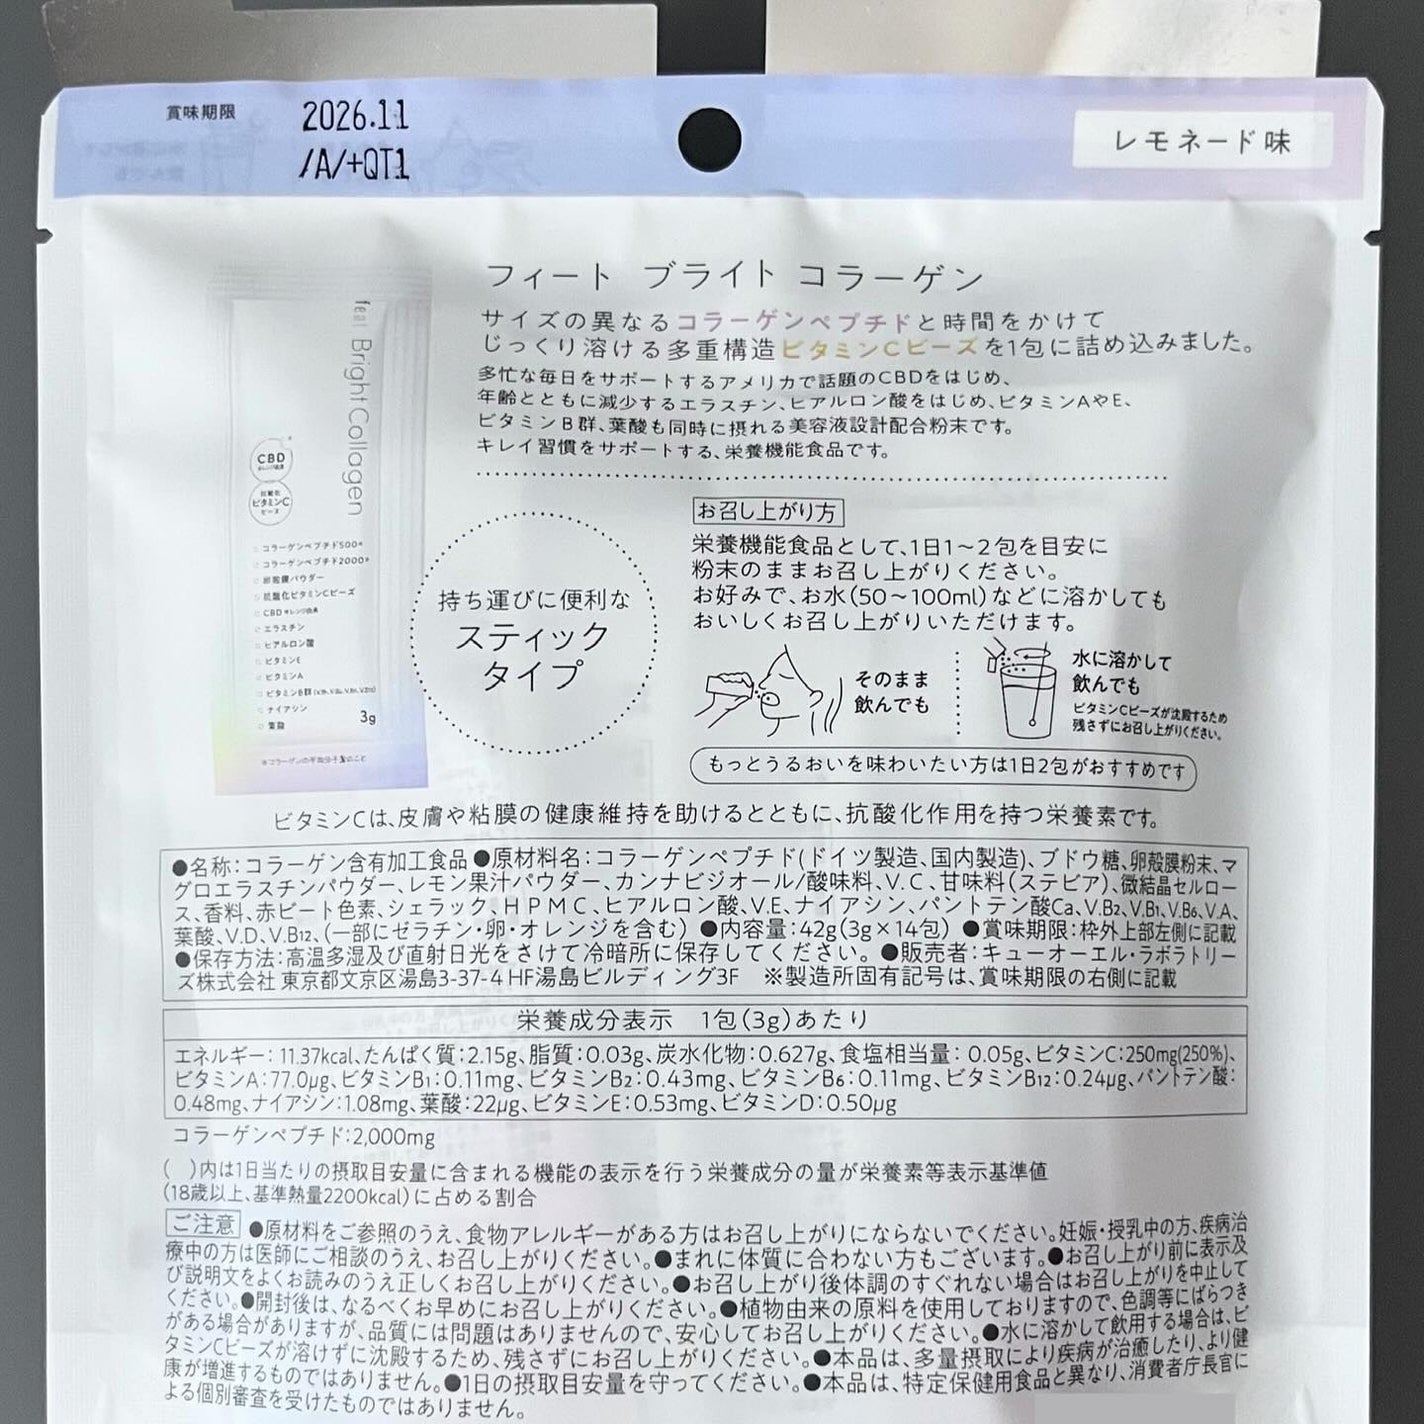 賞味期限
2026.11
/A/+QT1
レモネード味
フィート ブライト コラーゲン
サイズの異なるコラーゲンペプチドと時間をかけて
じっくり溶ける多重構造ビタミンCビーズを1包に詰め込みました。
多忙な毎日をサポートするアメリカで話題のCBDをはじめ、
年齢とともに減少するエラスチン、ヒアルロン酸をはじめ、ビタミンAやE、
ビタミンB群、葉酸も同時に摂れる美容液設計配合粉末です。
キレイ習慣をサポートする、栄養機能食品です。
Bright Collagen
CBD
ビタミンC
ビーズ
コラーゲンペプチド500※
コラーゲンペプチド2000※
卵殻膜パウダー
抗酸化ビタミンCビーズ
CBD オレンジ由来
エラスチン
ヒアルロン酸
ビタミンE
ビタミンA
ビタミンB群
ナイアシン
葉酸
3g
持ち運びに便利な
スティック
タイプ
お召し上がり方
栄養機能食品として、1日1～2包を目安に
粉末のままお召し上がりください。
お好みで、お水(50～100ml)などに溶かしても
おいしくお召し上がりいただけます。
そのまま
飲んでも
水に溶かして
飲んでも
ビタミンCビーズが沈殿するため
残さずにお召し上がりください。
もっとうるおいを味わいたい方は1日2包がおすすめです
ビタミンCは、皮膚や粘膜の健康維持を助けるとともに、抗酸化作用を持つ栄養素です。
●名称：コラーゲン含有加工食品 ●原材料名：コラーゲンペプチド(ドイツ製造、国内製造)、ブドウ糖、卵殻膜粉末、マ
グロエラスチンパウダー、レモン果汁パウダー、カンナビジオール/酸味料、V.C、甘味料(ステビア)、微結晶セルロー
ス、香料、赤ビート色素、シェラック、HPMC、ヒアルロン酸、V.E、ナイアシン、パントテン酸Ca、V.B2、V.B1、V.B6、V.A、
葉酸、V.D、V.B12、(一部にゼラチン・卵・オレンジを含む) ●内容量：42g(3g×14包) ●賞味期限：枠外上部左側に記載
●保存方法：高温多湿及び直射日光をさけて冷暗所に保存してください。 ●販売者：キューオーエル・ラボラトリー
ズ株式会社 東京都文京区湯島3-37-4 HF湯島ビルディング3F ※製造所固有記号は、賞味期限の右側に記載
栄養成分表示 1包(3g)あたり
エネルギー：11.37kcal、たんぱく質：2.15g、脂質：0.03g、炭水化物：0.627g、食塩相当量：0.05g、ビタミンC：250mg(250%)、
ビタミンA：77.0μg、ビタミンB1：0.11mg、ビタミンB2：0.43mg、ビタミンB6：0.11mg、ビタミンB12：0.24μg、パントテン酸：
0.48mg、ナイアシン：1.08mg、葉酸：22μg、ビタミンE：0.53mg、ビタミンD：0.50μg
コラーゲンペプチド：2,000mg
( )内は1日当たりの摂取目安量に含まれる機能の表示を行う栄養成分の量が栄養素等表示基準値
(18歳以上、基準熱量2200kcal)に占める割合
ご注意 ●原材料をご参照のうえ、食物アレルギーがある方はお召し上がりにならないでください。妊娠・授乳中の方、疾病治
療中の方は医師にご相談のうえ、お召し上がりください。●まれに体質に合わない方もございます。●お召し上がり前に表示及
び説明文をよくお読みのうえ正しくお召し上がりください。●お召し上がり後体調のすぐれない場合はお召し上がりを中止して
ください。●開封後は、なるべくお早めにお召し上がりください。●植物由来の原料を使用しておりますので、色調等にばらつき
がある場合がありますが、品質には問題はありませんので、安心してお召し上がりください。●水に溶かして飲用する場合は、ビ
タミンCビーズが溶けずに沈殿するため、残さずにお召し上がりください。●本品は、多量摂取により疾病が治癒したり、より健
康が増進するものではありません。●1日の摂取目安量を守ってください。●本品は、特定保健用食品と異なり、消費者庁長官に
よる個別審査を受けたものではありません。